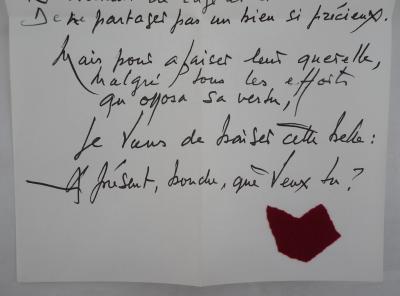 De ne partager pas un bien si précieux.
Mais pour apaiser leur querelle,
Malgré tous les efforts
qu'opposa sa vertu,
Je viens de baiser cette belle :
— A présent, bouche, que veux tu ?